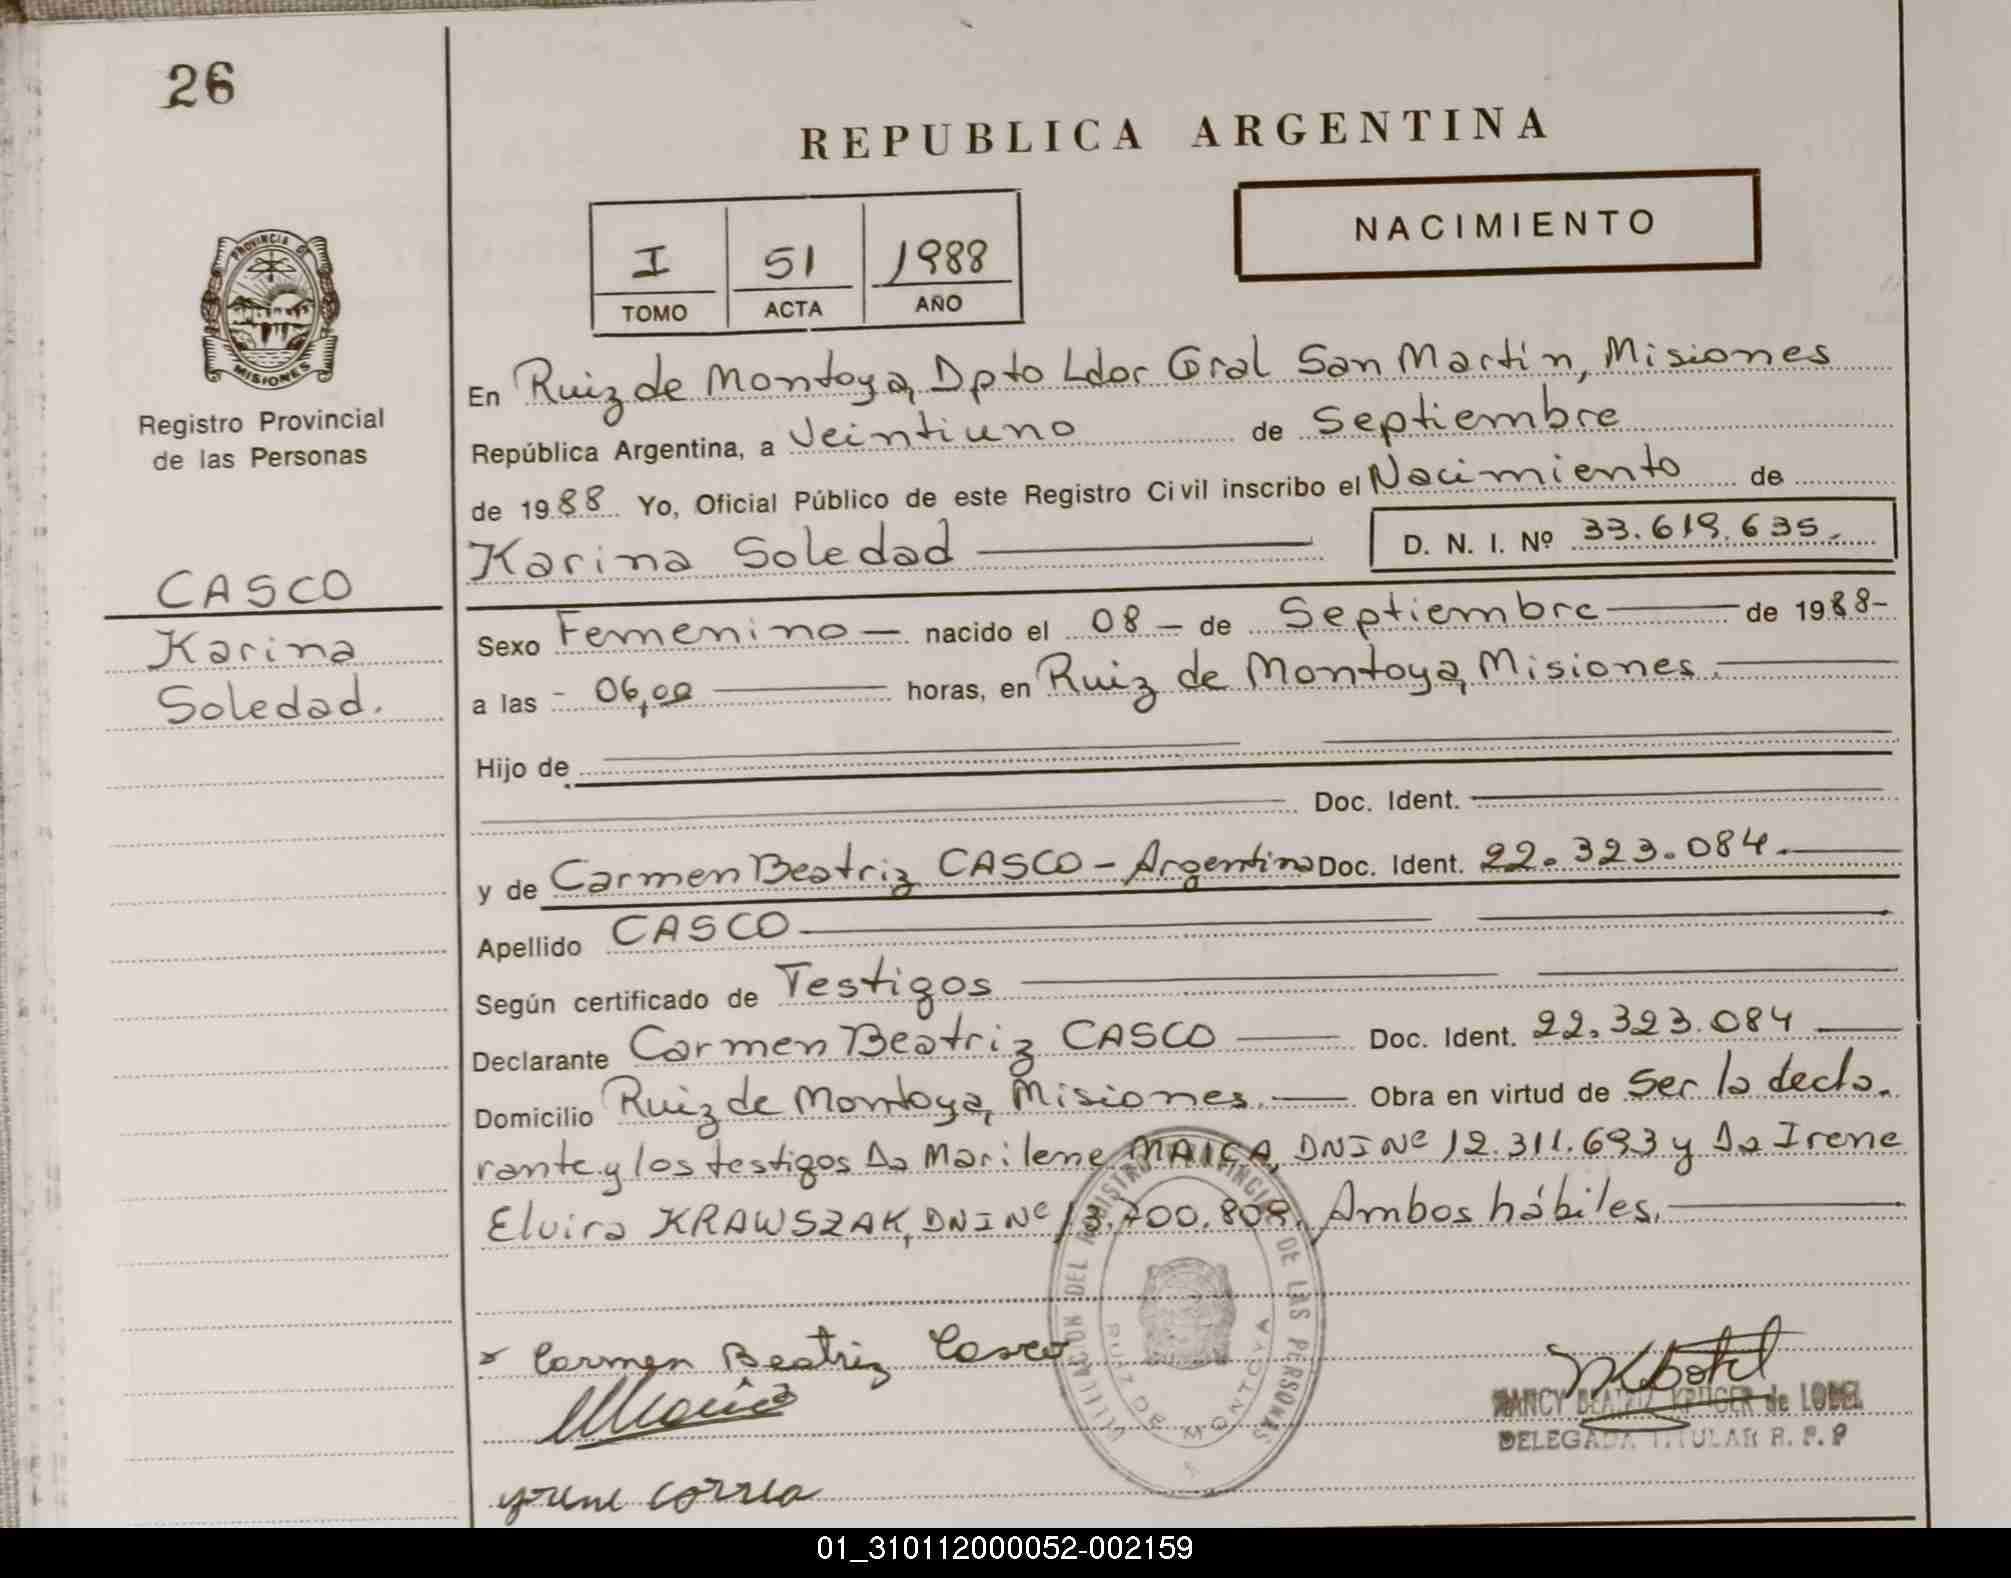 26
REPUBLICA ARGENTINA
NACIMIENTO
I 51 1988
TOMO ACTA AÑO
PROVINCIA DE
MISIONES
Registro Provincial
de las Personas
CASCO
Karina
Soledad.
En Ruiz de Montoya, Dpto Ldor Gral San Martín, Misiones
República Argentina, a Veintiuno de Septiembre
de 1988 Yo, Oficial Público de este Registro Civil inscribo el Nacimiento de
Karina Soledad D. N. I. Nº 33.619.635.
Sexo Femenino — nacido el 08 — de Septiembre — de 1988-
a las - 06,00 — horas, en Ruiz de Montoya, Misiones.
Hijo de
Doc. Ident.
y de Carmen Beatriz CASCO - Argentina Doc. Ident. 22.323.084.
Apellido CASCO
Según certificado de Testigos
Declarante Carmen Beatriz CASCO — Doc. Ident. 22.323.084
Domicilio Ruiz de Montoya, Misiones. — Obra en virtud de Ser la decla.
rante y los testigos Da Marilene MAICA, DNI Nº 12.311.693 y Da Irene
Elvira KRAWSZAK, DNI Nº 13.700.809. Ambos hábiles.
DEL REGISTRO PROVINCIAL DE LAS PERSONAS
RUIZ DE MONTOYA
Carmen Beatriz Casco
NANCY BEATRIZ KRUGER de LOBEL
DELEGADA TITULAR R. P. P
Yrene Correa
01_310112000052-002159